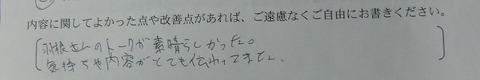 内容に関してよかった点や改善点があれば、ご遠慮なくご自由にお書きください。
羽根さんのトークが素晴らしかった。
気持ちや内容がとても伝わってきました。